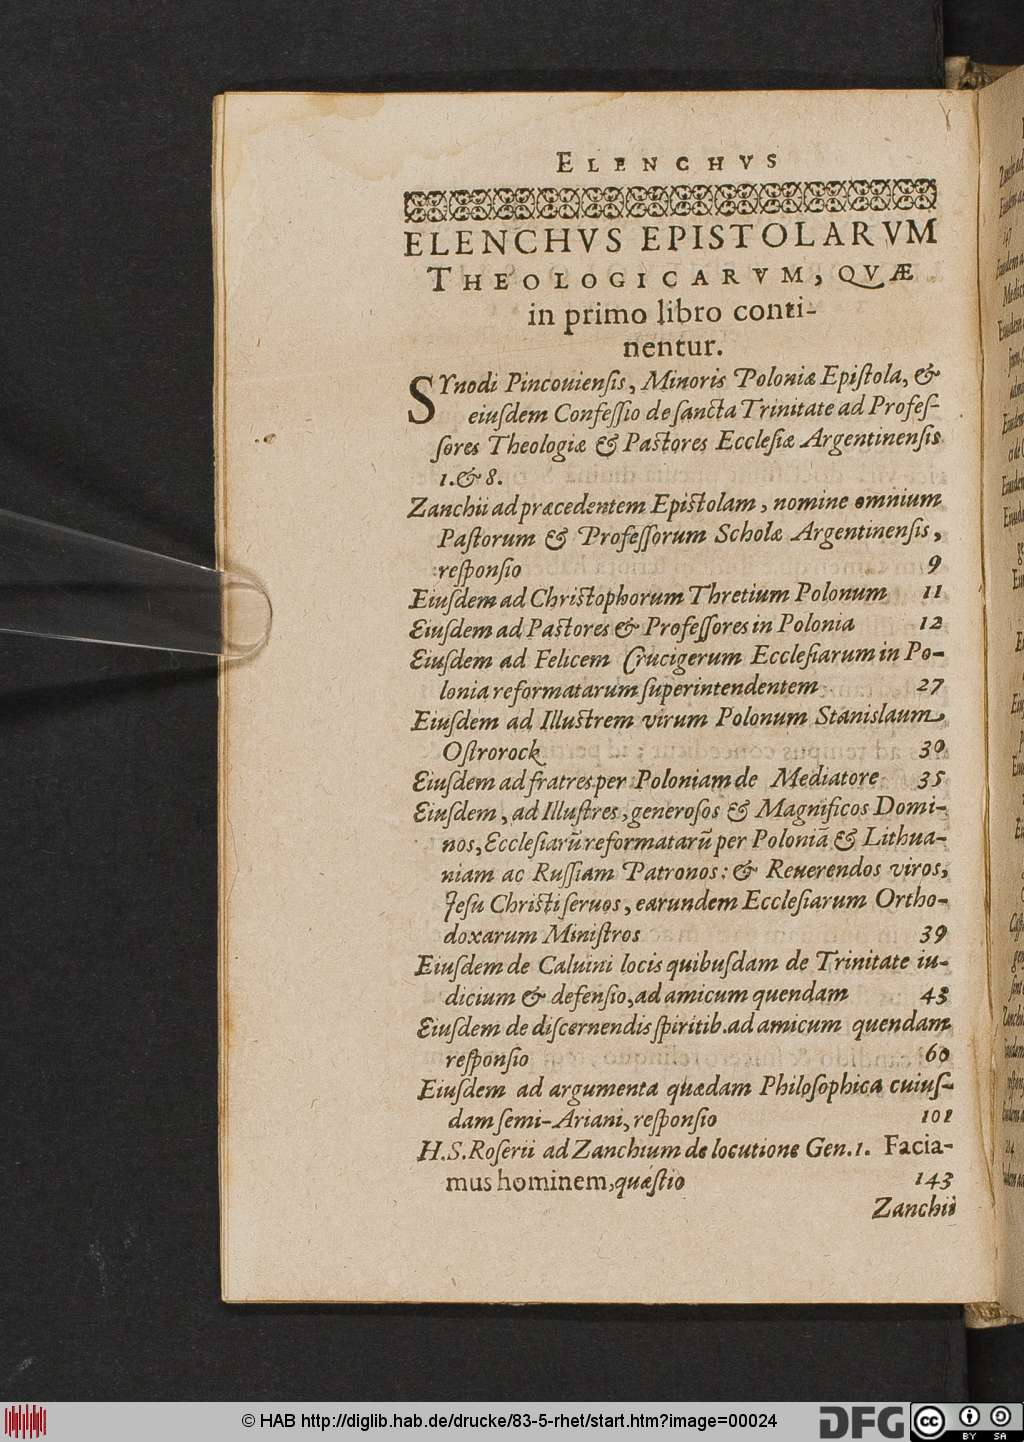 ELENCHVS
ELENCHVS EPISTOLARVM
THEOLOGICARVM, QVÆ
in primo libro conti-
nentur.
SYnodi Pincouiensis, Minoris Poloniæ Epistola, &
eiusdem Confessio de sancta Trinitate ad Profes-
sores Theologiæ & Pastores Ecclesiæ Argentinensis
1. & 8.
Zanchii ad præcedentem Epistolam, nomine omnium
Pastorum & Professorum Scholæ Argentinensis,
responsio 9
Eiusdem ad Christophorum Thretium Polonum 11
Eiusdem ad Pastores & Professores in Polonia 12
Eiusdem ad Felicem Crucigerum Ecclesiarum in Po-
lonia reformatarum superintendentem 27
Eiusdem ad Illustrem virum Polonum Stanislaum
Ostrorock 30
Eiusdem ad fratres per Poloniam de Mediatore 35
Eiusdem, ad Illustres, generosos & Magnificos Domi-
nos, Ecclesiarū reformatarū per Poloniā & Lithua-
niam ac Russiam Patronos: & Reuerendos viros,
Jesu Christi seruos, earundem Ecclesiarum Ortho-
doxarum Ministros 39
Eiusdem de Caluini locis quibusdam de Trinitate iu-
dicium & defensio, ad amicum quendam 43
Eiusdem de discernendis spiritib. ad amicum quendam
responsio 60
Eiusdem ad argumenta quædam Philosophica cuius-
dam semi-Ariani, responsio 101
H. S. Roserii ad Zanchium de locutione Gen. 1. Facia-
mus hominem, quæstio 143
Zanchii
© HAB http://diglib.hab.de/drucke/83-5-rhet/start.htm?image=00024
DFG
cc BY SA